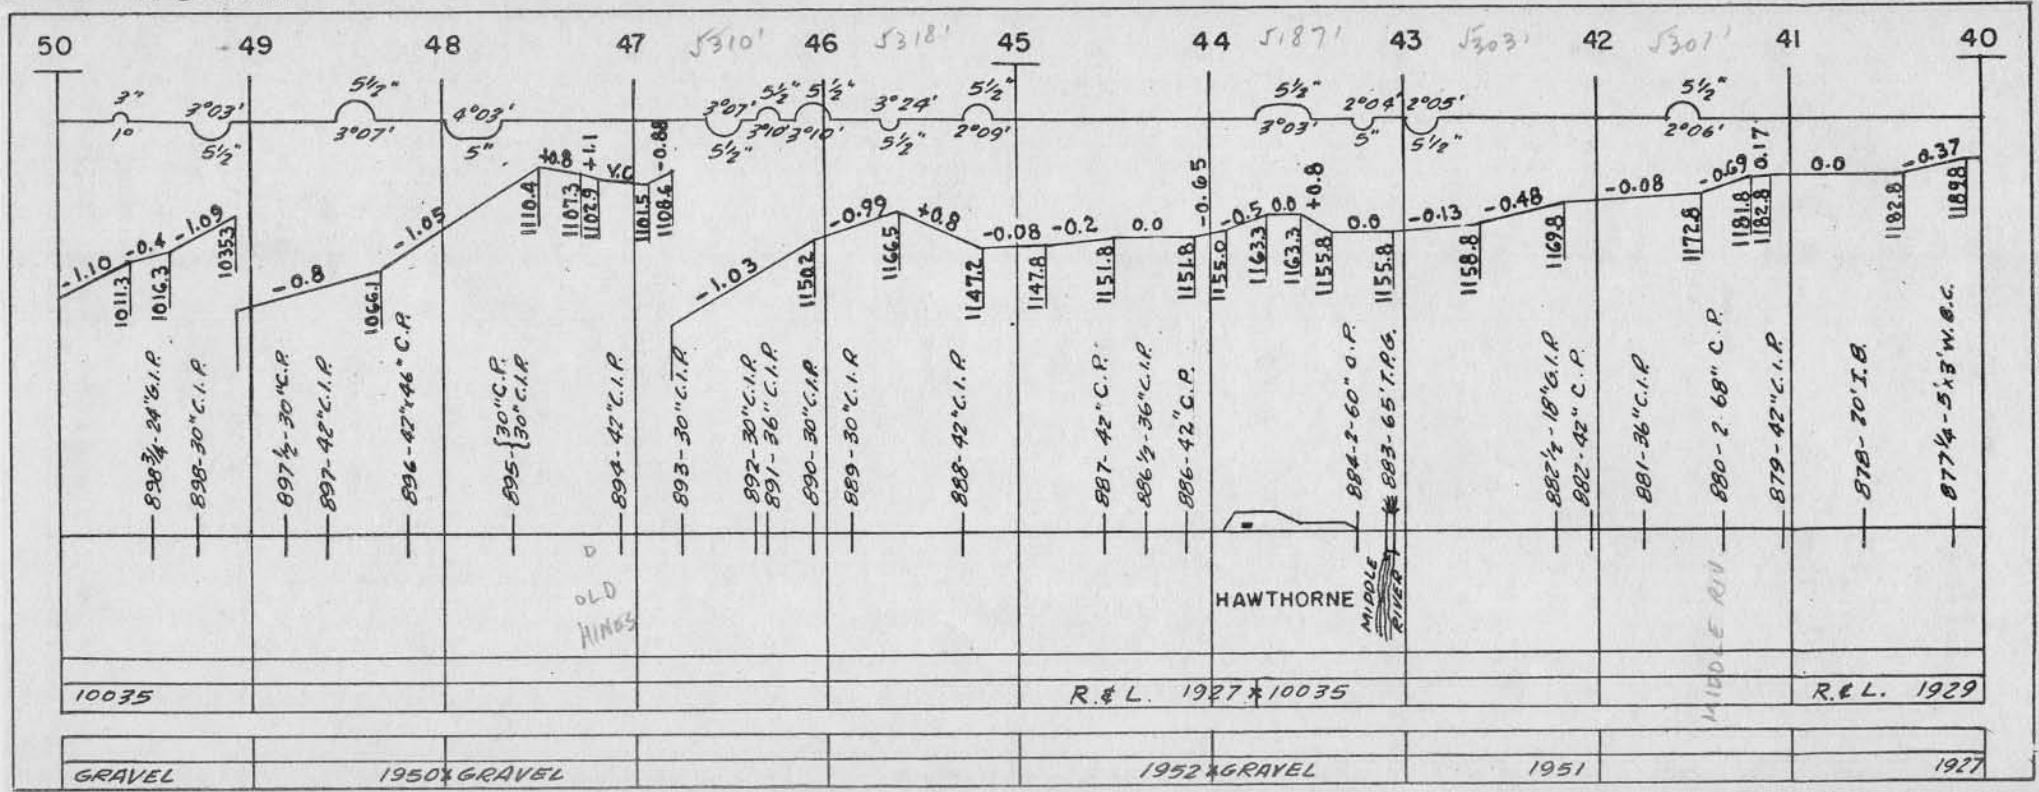 50 49 48 47 5310' 46 5318' 45 44 5187' 43 5303' 42 5301' 41 40
3" 3°03' 5½" 4°03' 3°07' 5½" 5½" 3°24' 5½" 5½" 2°04' 2°05' 5½"
1° 5½" 3°07' 5" 5½" 3°10' 3°10' 5½" 2°09' 3°03' 5" 5½" 2°06'
-1.10 -0.4 -1.09 -0.8 -1.05 +0.8 +1.1 V.C. -0.88 -1.03 -0.99 +0.8 -0.08 -0.2 0.0 -0.65 -0.5 0.0 +0.8 0.0 -0.13 -0.48 -0.08 -0.69 -0.17 0.0 -0.37
1011.3 1016.3 1035.3 1066.1 1110.4 1107.3 1102.9 1101.5 1108.6 1150.2 1166.5 1147.2 1147.8 1151.8 1151.8 1155.0 1163.3 1163.3 1155.8 1155.8 1158.8 1169.8 1172.8 1181.8 1182.8 1182.8 1189.8
898¾-24"G.I.P.
898-30"C.I.P.
897½-30"C.P.
897-42"C.I.P.
896-42"x46" C.P.
895-{30"C.P.
{30"C.I.P.
894-42"C.I.P.
893-30"C.I.P.
892-30"C.I.P.
891-36"C.I.P.
890-30"C.I.P.
889-30"C.I.P.
888-42"C.I.P.
887-42"C.P.
886½-36"C.I.P.
886-42"C.P.
884-2-60" O.P.
883-65' T.P.G.
882½-18"G.I.P.
882-42" C.P.
881-36"C.I.P.
880-2-68" C.P.
879-42"C.I.P.
878-20' I.B.
877¼-5'x3' W.B.C.
OLD
HINES
HAWTHORNE
MIDDLE
RIVER
MIDDLE RIV.
10035 R.&L. 1927 x 10035 R.&L. 1929
GRAVEL 1950 x GRAVEL 1952 x GRAVEL 1951 1927